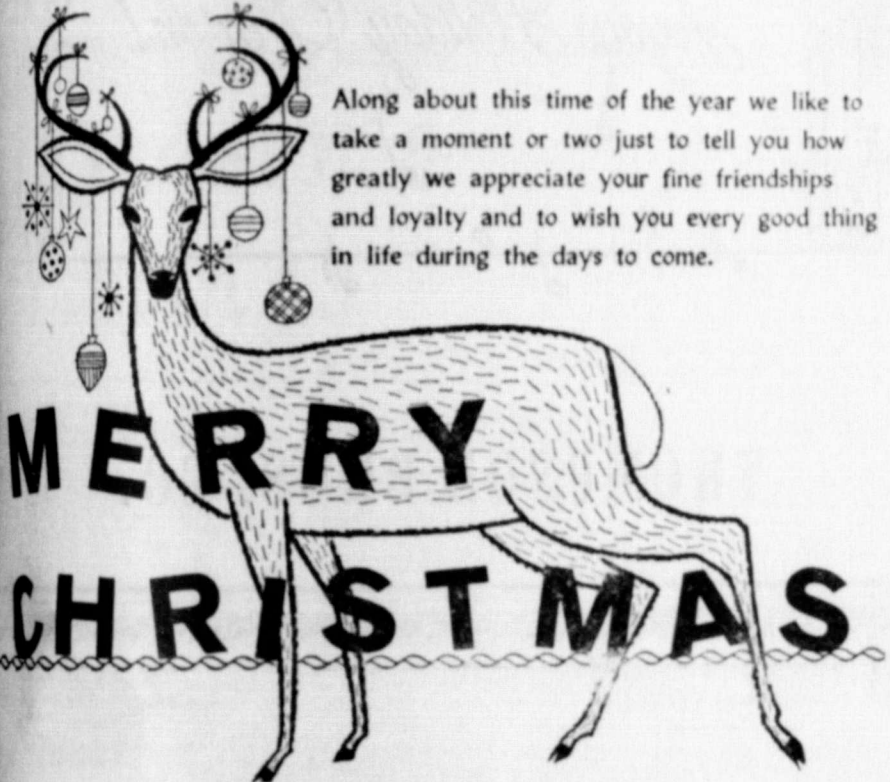 Along about this time of the year we like to
take a moment or two just to tell you how
greatly we appreciate your fine friendships
and loyalty and to wish you every good thing
in life during the days to come.
MERRY
CHRISTMAS